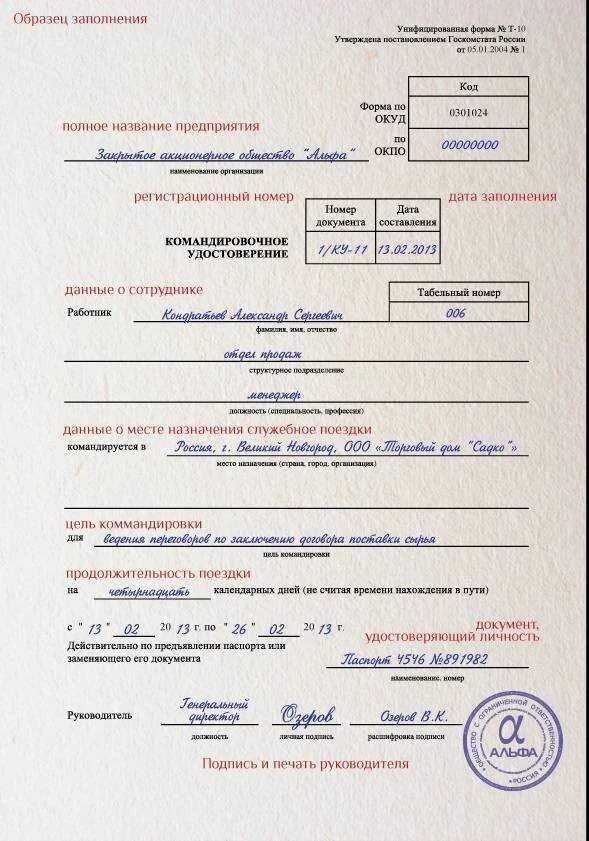 Образец заполнения
Унифицированная форма № Т-10
Утверждена постановлением Госкомстата России
от 05.01.2004 № 1
Код
Форма по ОКУД
0301024
по ОКПО
00000000
полное название предприятия
Закрытое акционерное общество "Альфа"
наименование организации
регистрационный номер
дата заполнения
Номер документа
Дата составления
КОМАНДИРОВОЧНОЕ
УДОСТОВЕРЕНИЕ
1/КУ-11
13.02.2013
данные о сотруднике
Табельный номер
Работник
Кондратьев Александр Сергеевич
006
фамилия, имя, отчество
отдел продаж
структурное подразделение
менеджер
должность (специальность, профессия)
данные о месте назначения служебное поездки
командируется в Россия, г. Великий Новгород, ООО «Торговый дом "Садко"»
место назначения (страна, город, организация)
цель коммандировки
для ведения переговоров по заключению договора поставки сырья
цель командировки
продолжительность поездки
на четырнадцать календарных дней (не считая времени нахождения в пути)
с "13" 02 2013 г. по "26" 02 2013 г.
документ,
удостоверяющий личность
Действительно по предъявлении паспорта или
заменяющего его документа
Паспорт 4546 №891982
наименование, номер
Руководитель
Генеральный
директор
Озеров
Озеров В.К.
должность
личная подпись
расшифровка подписи
Подпись и печать руководителя
ОБЩЕСТВО С ОГРАНИЧЕННОЙ ОТВЕТСТВЕННОСТЬЮ
α
АЛЬФА
РОССИЯ